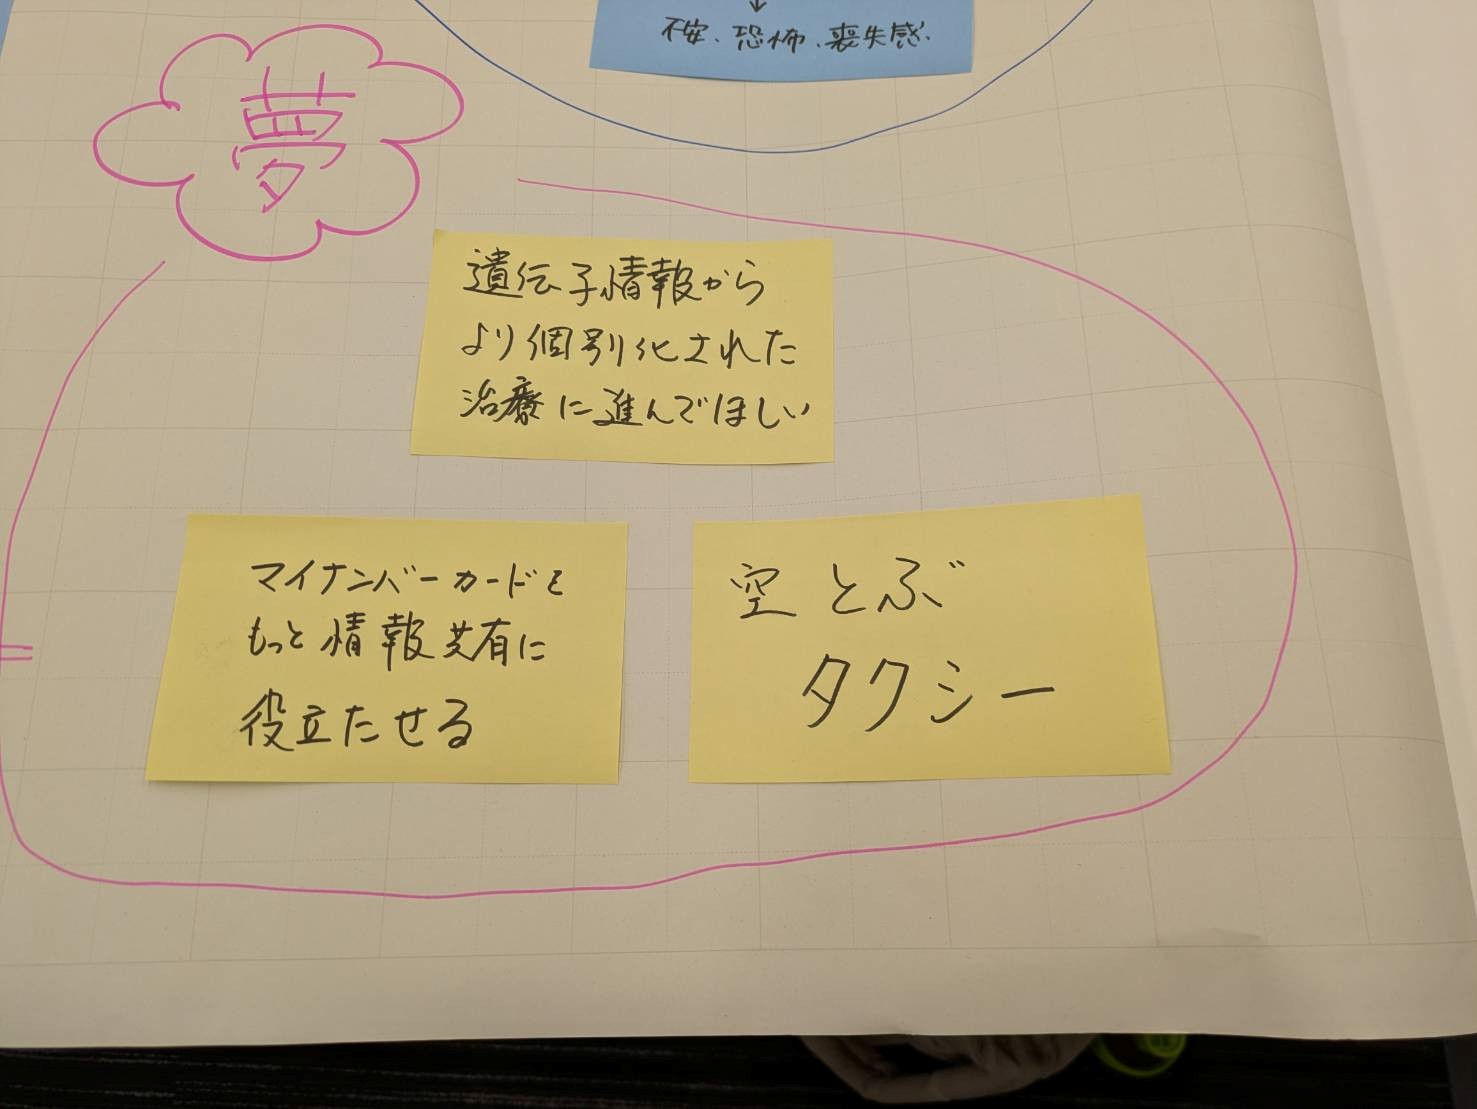 ↓
不安、恐怖、喪失感.
夢
遺伝子情報から
より個別化された
治療に進んでほしい
マイナンバーカードを
もっと情報共有に
役立たせる
空とぶ
タクシー